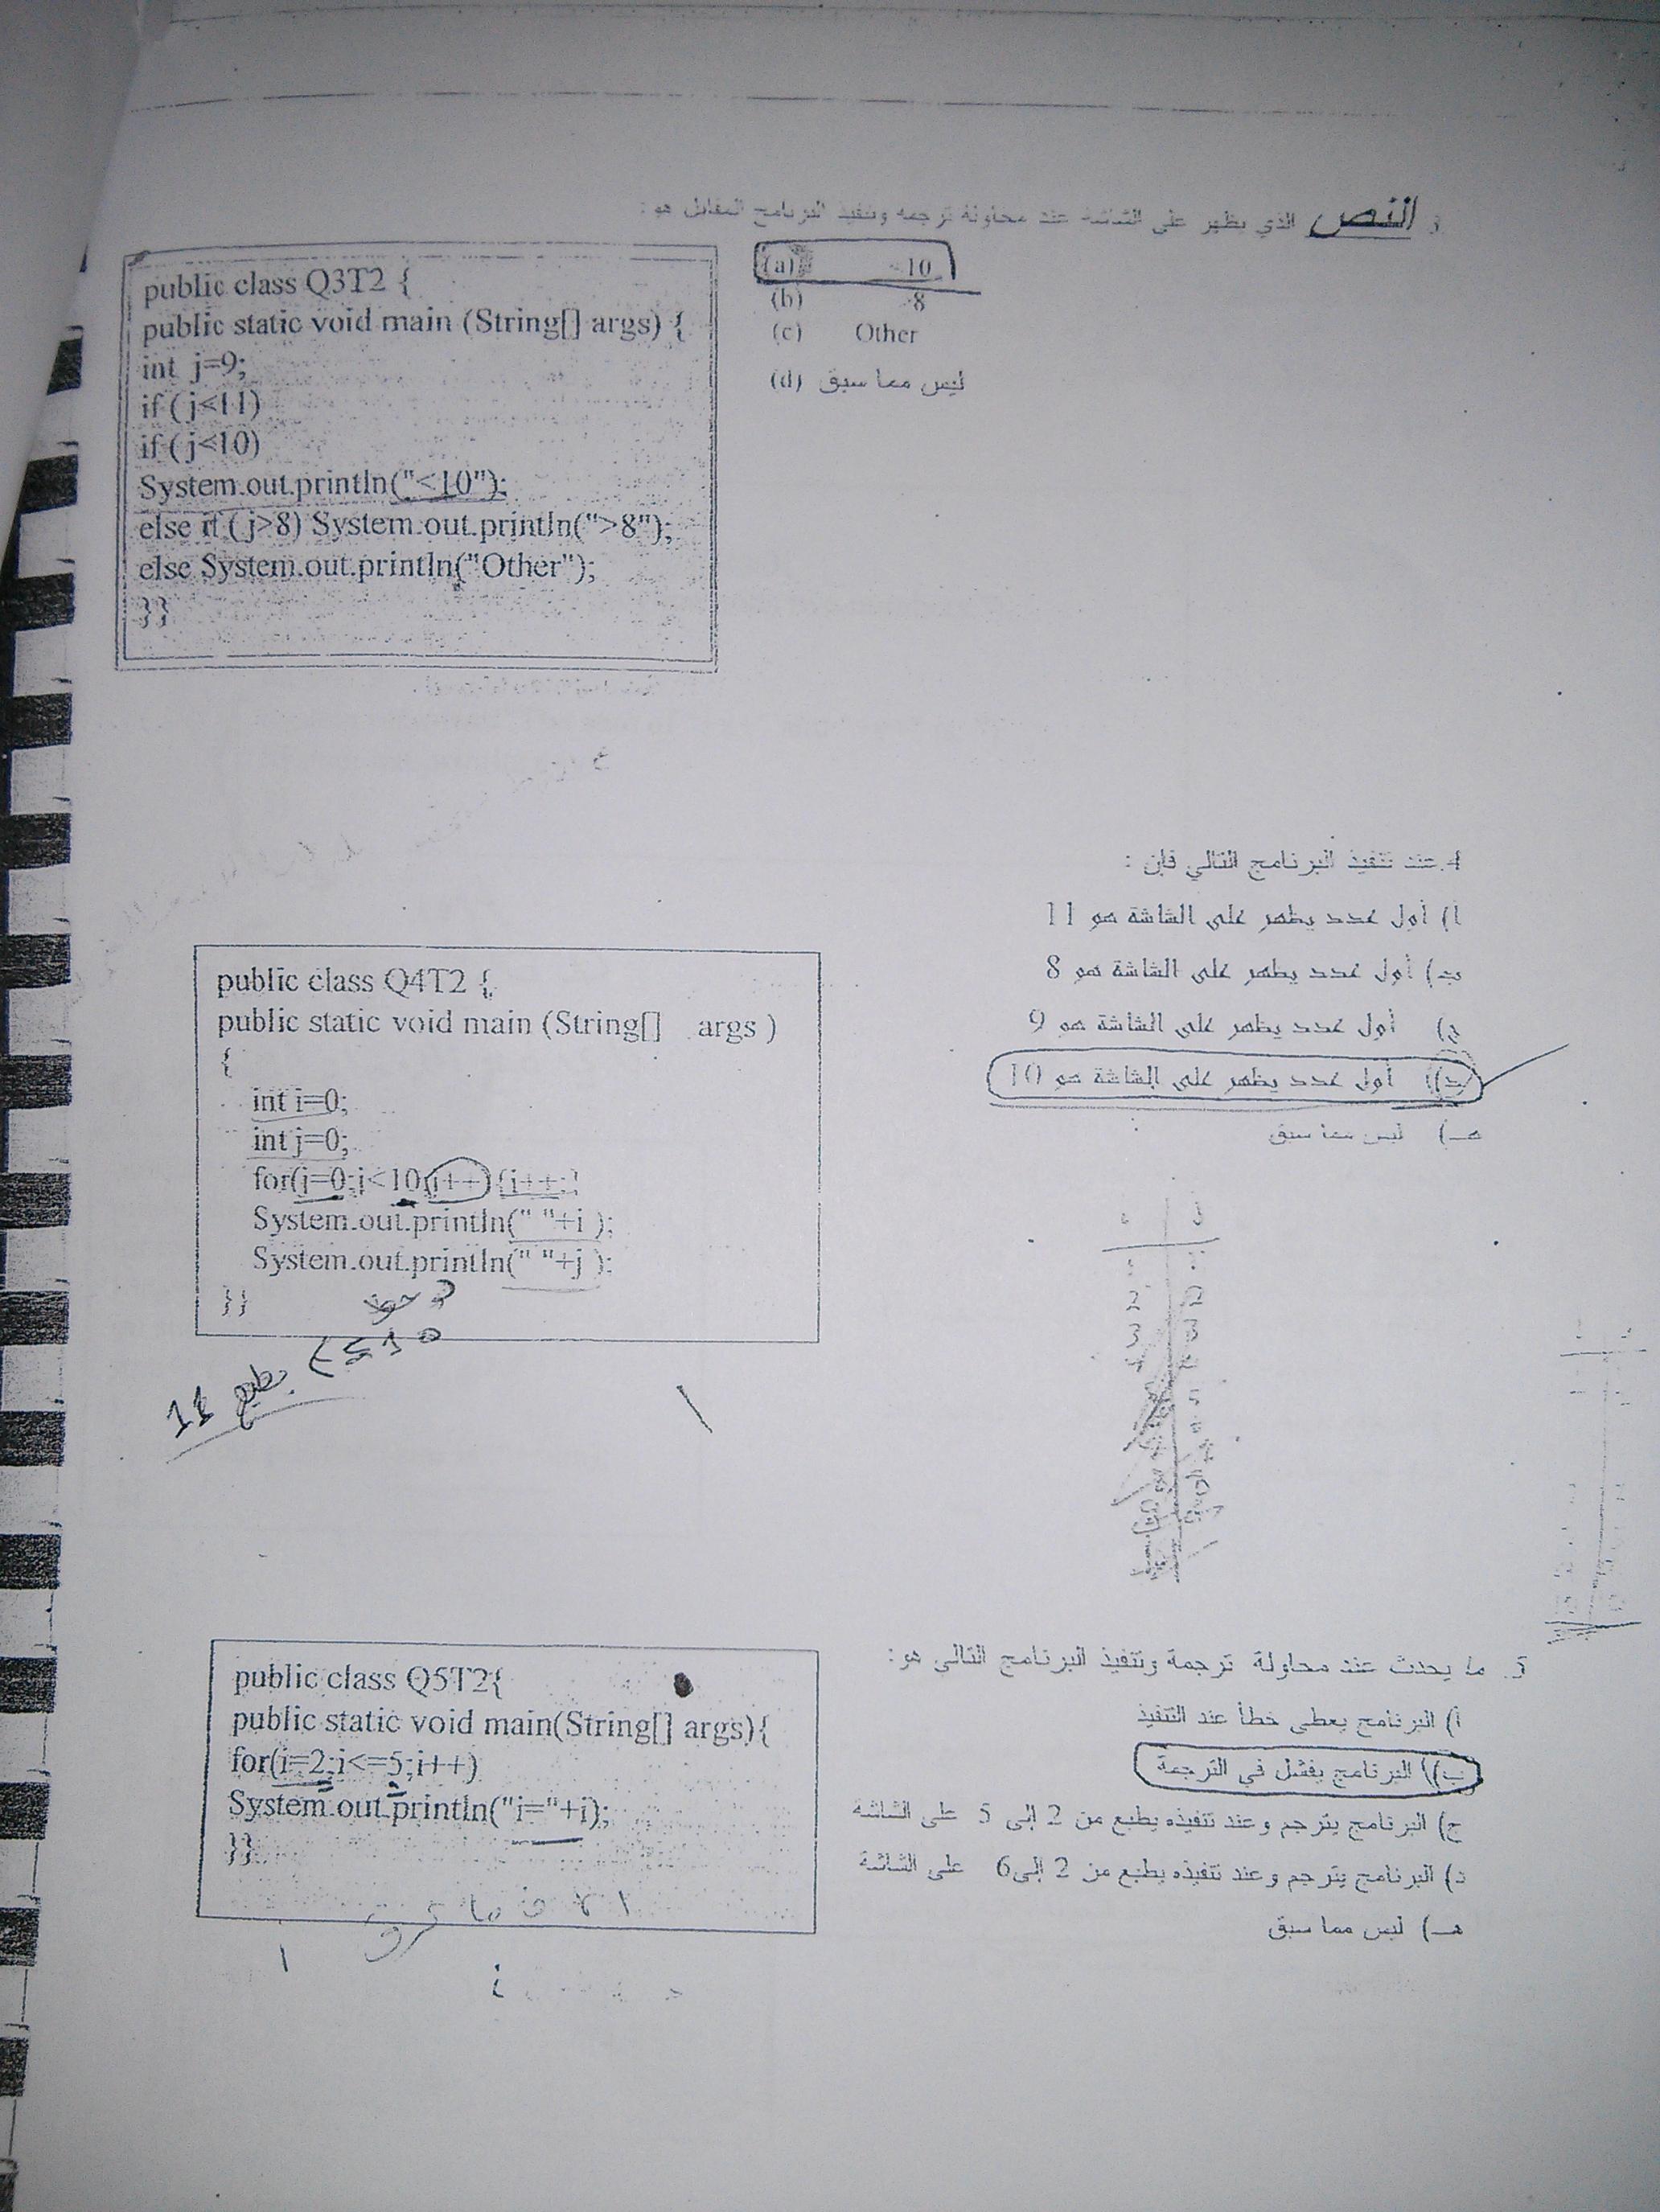 3. النص الذي يظهر على الشاشة عند محاولة ترجمة وتنفيذ البرنامج المقابل هو:
public class Q3T2 {
public static void main (String[] args) {
int j=9;
if ( j<11)
if ( j<10)
System.out.println("<10");
else if ( j>8) System.out.println(">8");
else System.out.println("Other");
}}
(a) <10
(b) >8
(c) Other
(d) ليس مما سبق
4.عند تنفيذ البرنامج التالي فإن :
أ) أول عدد يظهر على الشاشة هو 11
ب) أول عدد يظهر على الشاشة هو 8
ج) أول عدد يظهر على الشاشة هو 9
د) أول عدد يظهر على الشاشة هو 10
هـ) ليس مما سبق
public class Q4T2 {
public static void main (String[] args )
{
int i=0;
int j=0;
for(j=0;j<10;j++) {i++;}
System.out.println(" "+i );
System.out.println(" "+j );
}}
5. ما يحدث عند محاولة ترجمة وتنفيذ البرنامج التالي هو:
أ) البرنامج يعطي خطأ عند التنفيذ
ب) البرنامج يفشل في الترجمة
ج) البرنامج يترجم وعند تنفيذه يطبع من 2 إلى 5 على الشاشة
د) البرنامج يترجم وعند تنفيذه يطبع من 2 إلى6 على الشاشة
هـ) ليس مما سبق
public class Q5T2{
public static void main(String[] args){
for(i=2;i<=5;i++)
System.out.println("i="+i);
}}